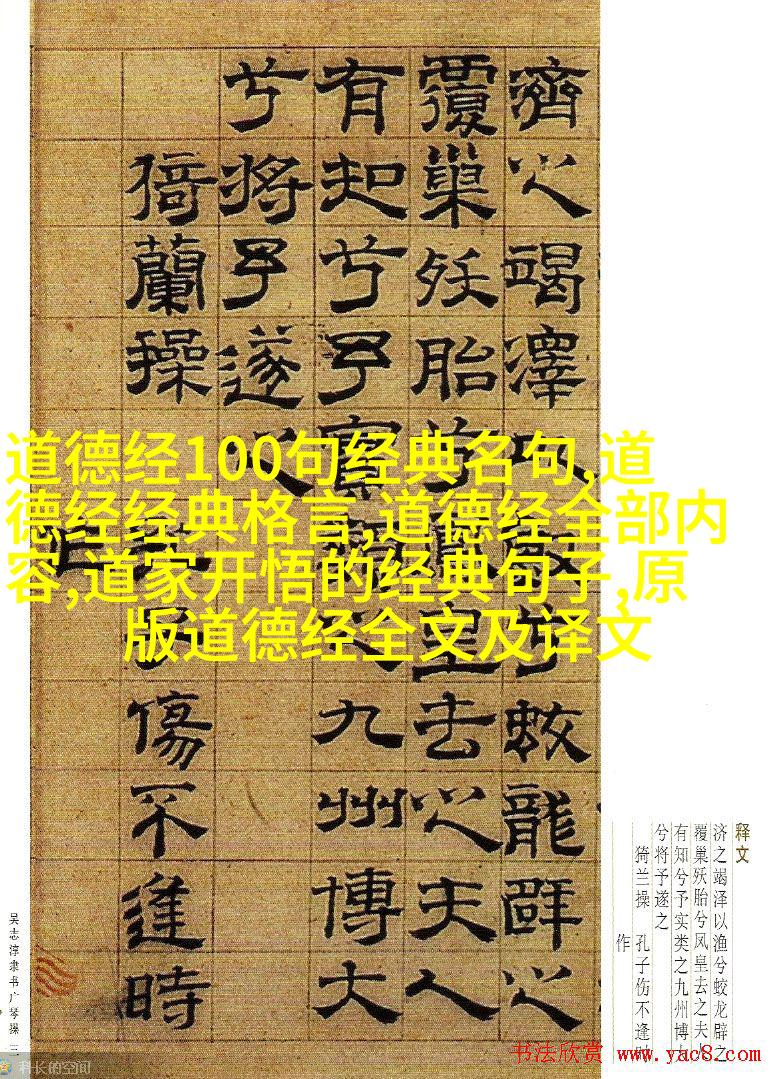 濟之竭澤以兮蛟龍辟之
覆巢殀胎兮鳳皇去之夫人
有知兮予實類之九州博大
兮將予遂之
猗蘭操 孔子傷不逢時
道德经100句经典名句,道
德经经典格言,道德经全部内
容,道家开悟的经典句子,原
版道德经全文及译文
释文
济之竭泽以渔兮蛟龙辟之
覆巢殀胎兮凤皇去之夫
有知兮予实类之九州博
兮将予遂之
猗兰操 孔子伤不逢时
作
吴志淳隶书广琴操 三
科长的空间
书法欣赏 www.yac8.com